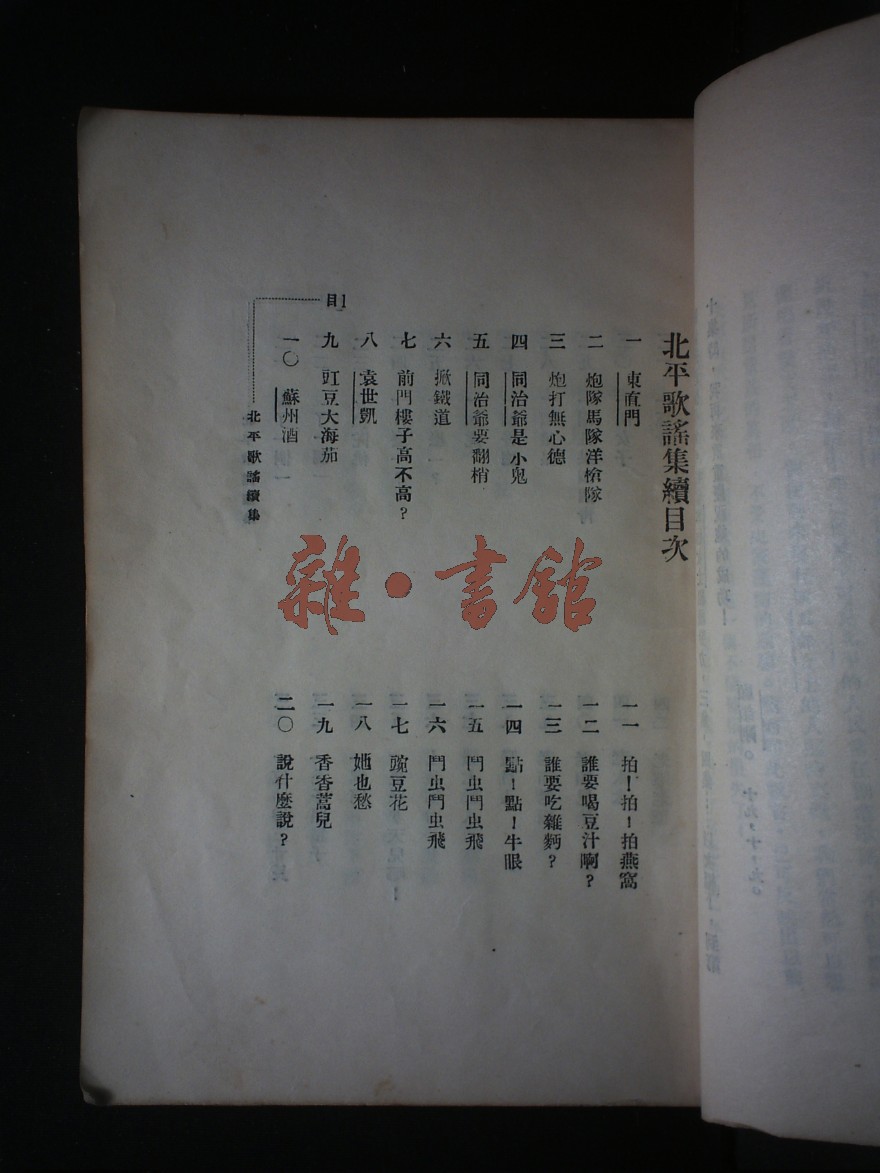 北平歌謠集續目次
一 東直門
二 炮隊馬隊洋槍隊
三 炮打無心德
四 同治爺是小鬼
五 同治爺要翻梢
六 掀鐵道
七 前門樓子高不高？
八 袁世凱
九 豇豆大海茄
一〇 蘇州酒
一一 拍！拍！拍燕窩
一二 誰要喝豆汁啊？
一三 誰要吃雜麪？
一四 點！點！牛眼
一五 鬥虫鬥虫飛
一六 鬥虫鬥虫飛
一七 豌豆花
一八 她也愁
一九 香香蒿兒
二〇 說什麽說？
目1
北平歌謠續集
雜·書館